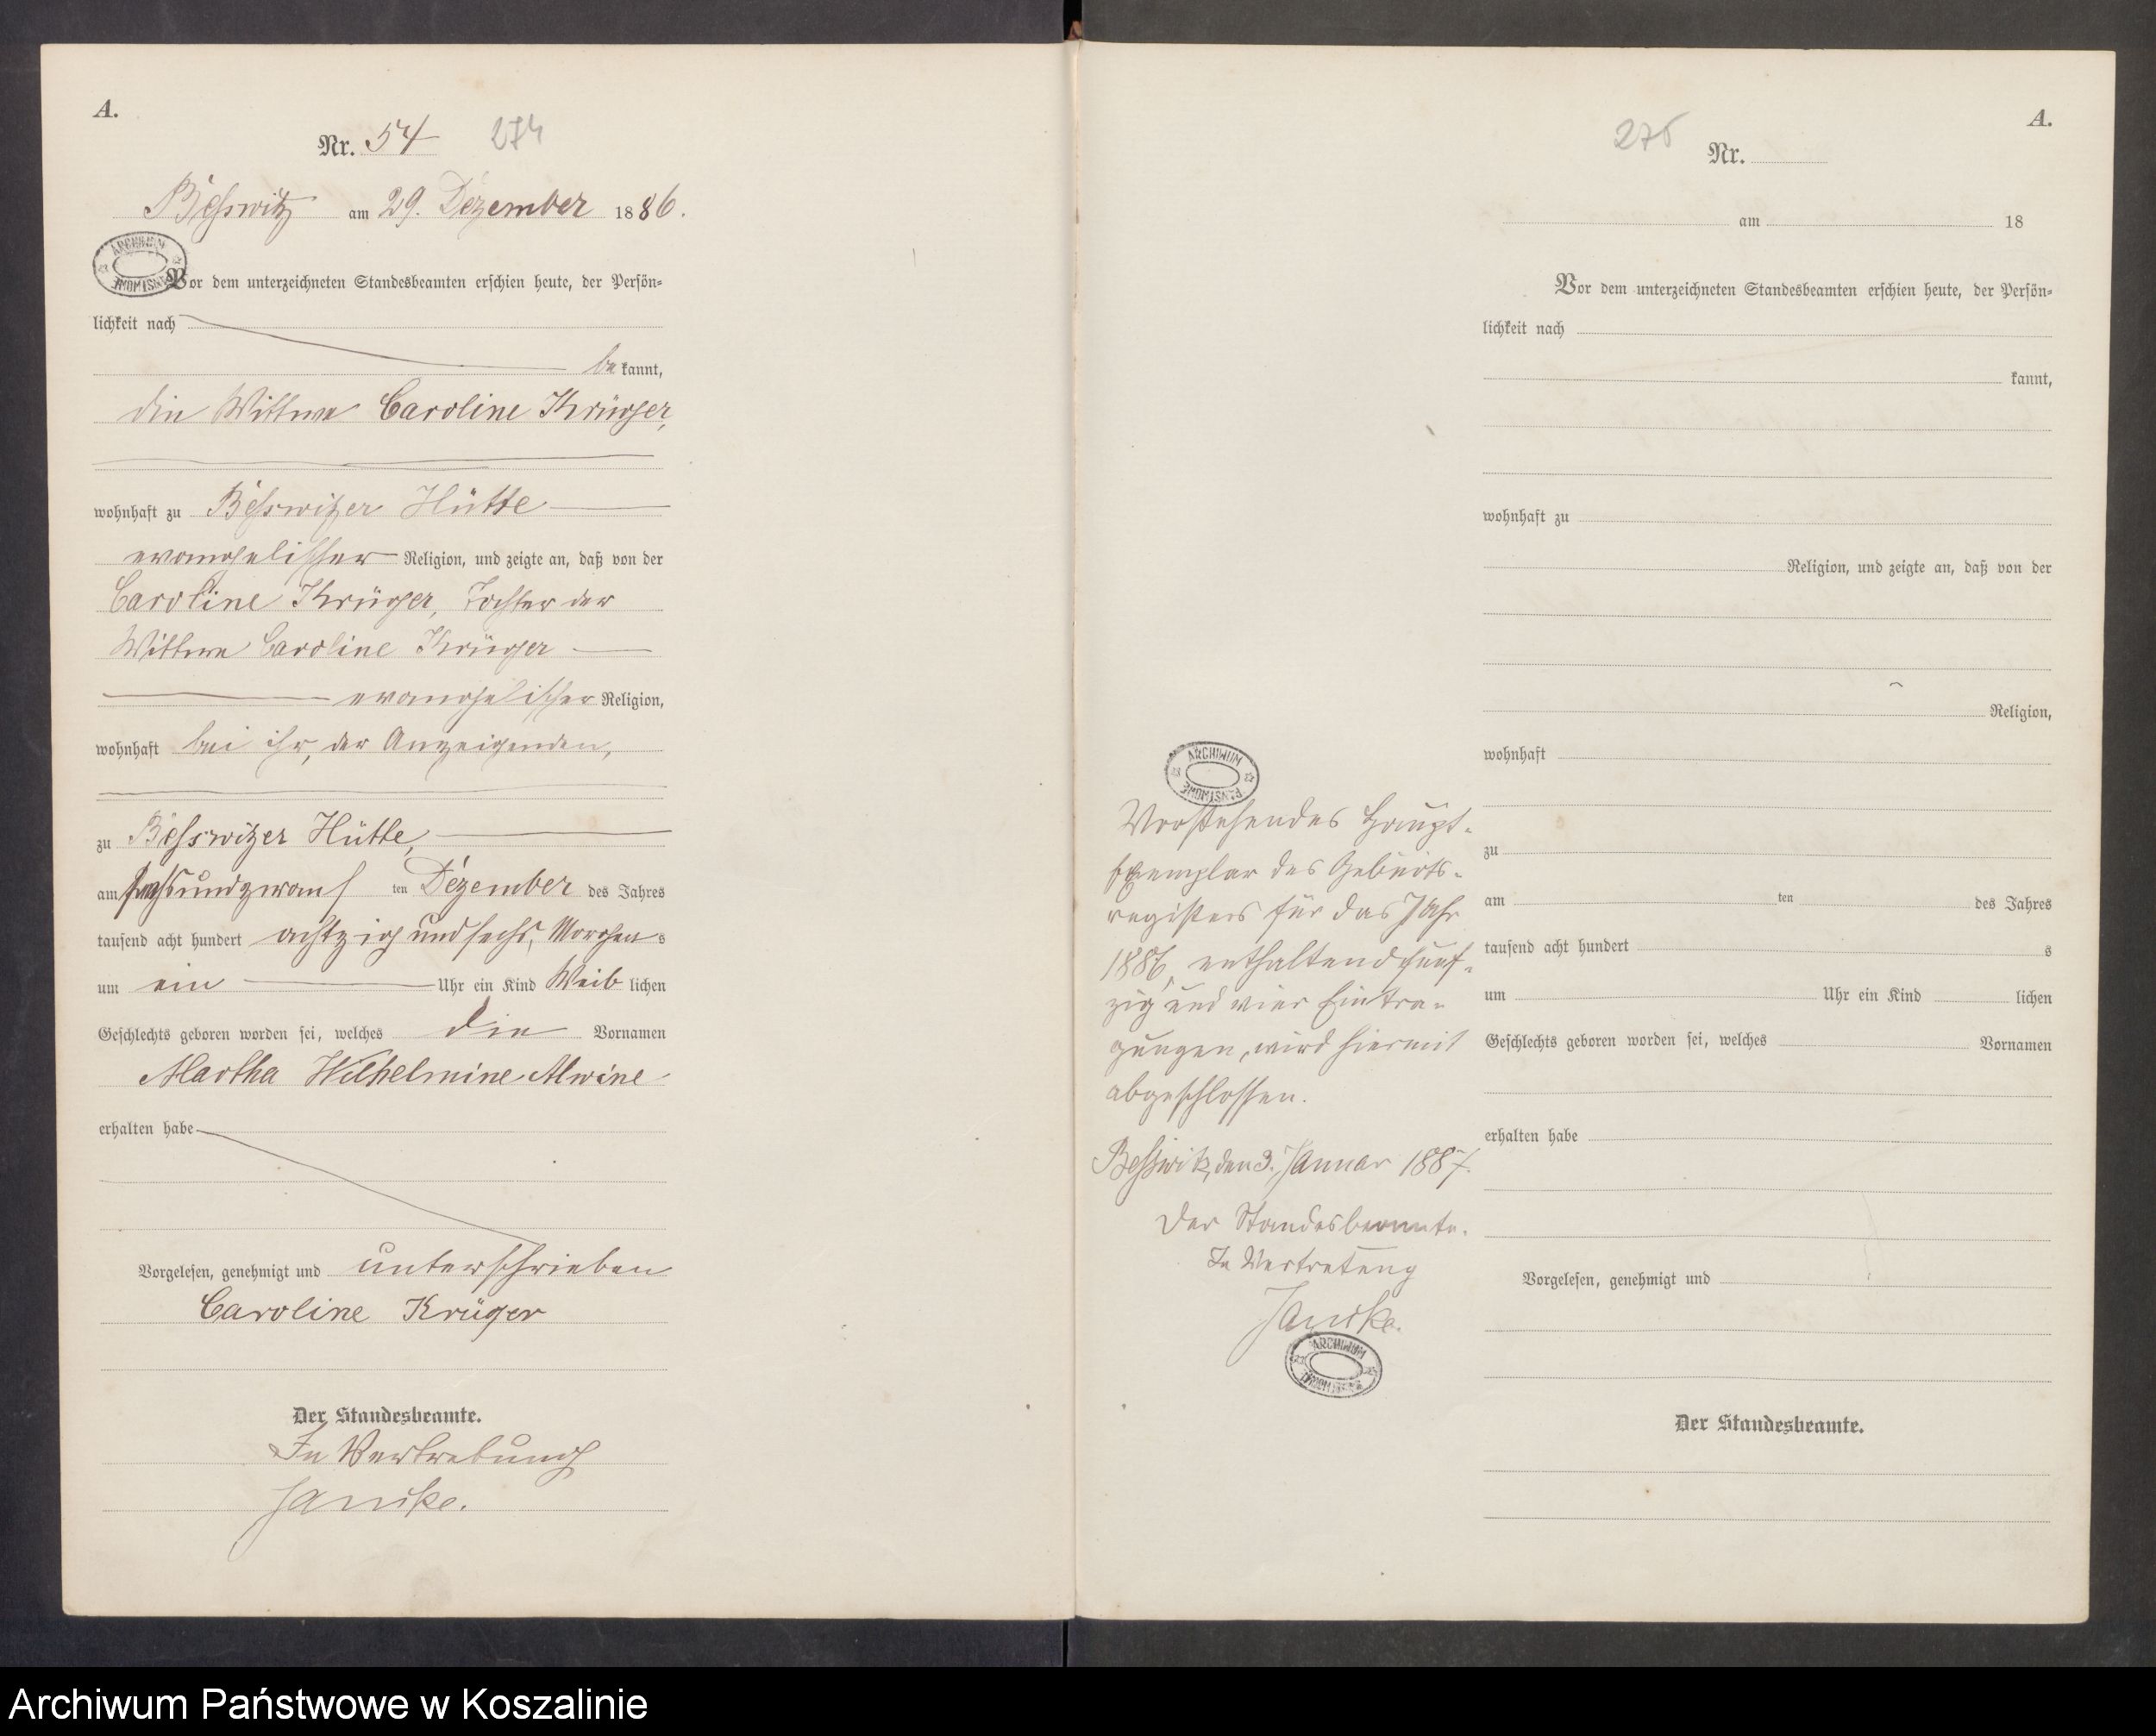 A.
Nr. 54 274
Beßwitz am 29. Dezember 1886.
ARCHIWUM PAŃSTWOWE
Vor dem unterzeichneten Standesbeamten erschien heute, der Persön-
lichkeit nach
be kannt,
die Wittwe Caroline Krüger,
wohnhaft zu Beßwitzer Hütte
evangelischer Religion, und zeigte an, daß von der
Caroline Krüger, Tochter der
Wittwe Caroline Krüger
evangelischer Religion,
wohnhaft bei ihr, der Anzeigenden,
zu Beßwitzer Hütte,
am ten Dezember des Jahres
tausend acht hundert achtzig und sechs, Morgens
um ein Uhr ein Kind Weib lichen
Geschlechts geboren worden sei, welches die Vornamen
Martha Wilhelmine Alwine
erhalten habe
Vorgelesen, genehmigt und unterschrieben
Caroline Krüger
Der Standesbeamte.
In Vertretung
A.
275 Nr.
am 18
Vor dem unterzeichneten Standesbeamten erschien heute, der Persön-
lichkeit nach
kannt,
wohnhaft zu
Religion, und zeigte an, daß von der
Religion,
wohnhaft
zu
am ten des Jahres
tausend acht hundert s
um Uhr ein Kind lichen
Geschlechts geboren worden sei, welches Vornamen
erhalten habe
Vorgelesen, genehmigt und
Der Standesbeamte.
ARCHIWUM PAŃSTWOWE
Vorstehendes Haupt-
Exemplar des Geburts-
registers für das Jahr
1886, enthaltend fünf-
zig und vier Eintra-
gungen, wird hiermit
abgeschlossen.
Beßwitz, den 3. Januar 1887.
Der Standesbeamte.
In Vertretung
ARCHIWUM PAŃSTWOWE
Archiwum Państwowe w Koszalinie